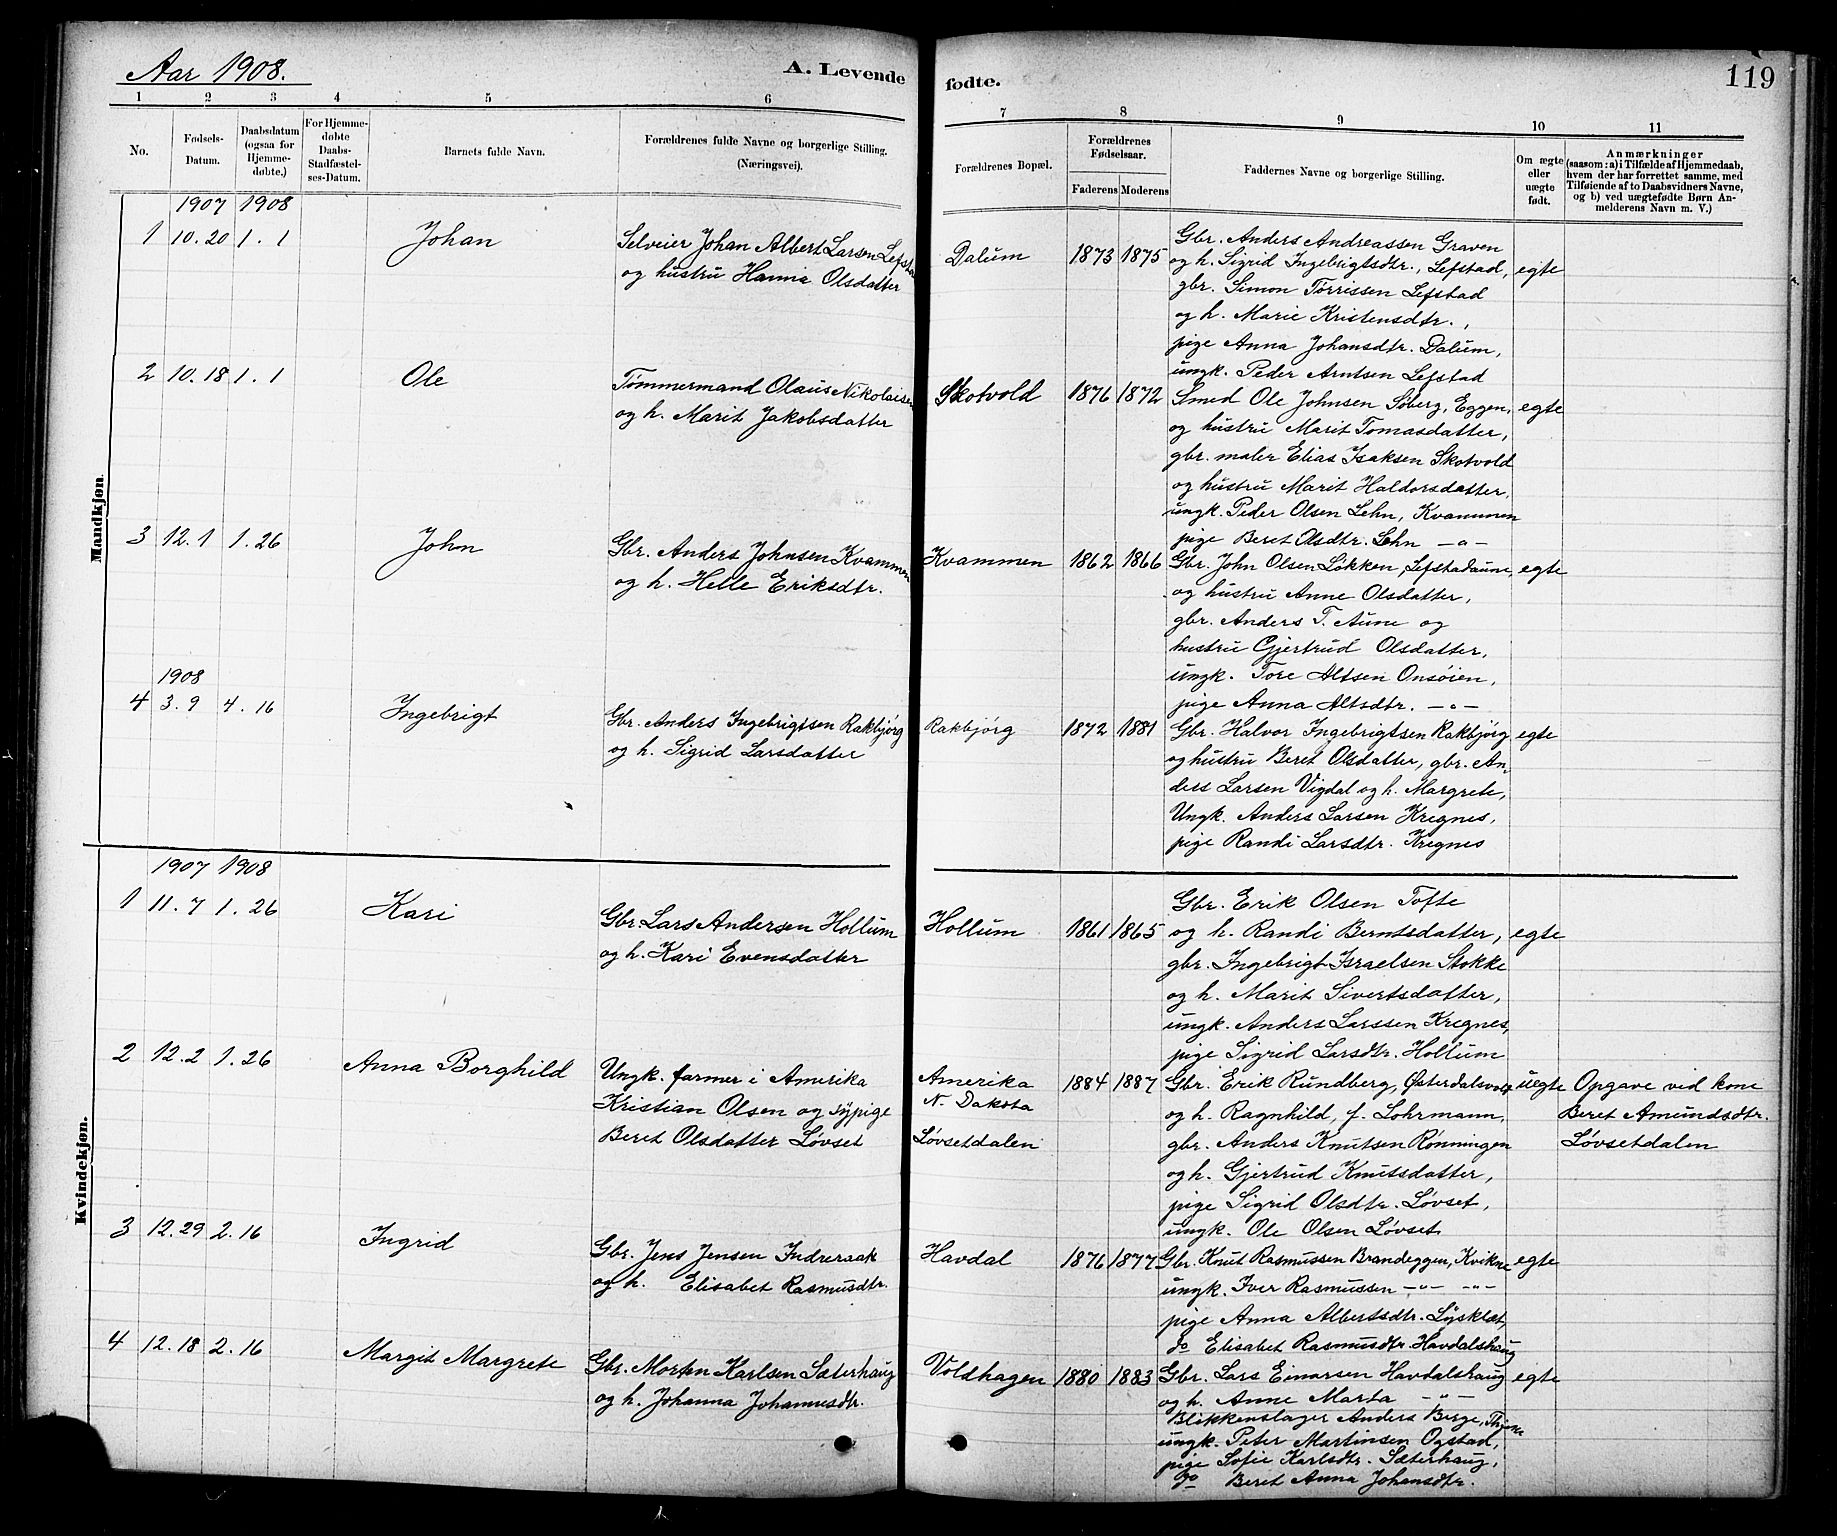 Aar 1908.
A. Levende fødte.
119
1 2 3 4 5 6 7 8 9 10 11
No.
Fødsels-Datum.
Daabsdatum (ogsaa for Hjemme-døbte.)
For Hjemme-døbte Daabs-Stadfæstel-ses-Datum.
Barnets fulde Navn.
Forældrenes fulde Navne og borgerlige Stilling. (Næringsvei).
Forældrenes Bopæl.
Forældrenes Fødselsaar.
Faderens Moderens
Faddernes Navne og borgerlige Stilling.
Om ægte eller uægte født.
Anmærkninger
(saasom: a) i Tilfælde af Hjemmedaab,
hvem der har forrettet samme, med
Tilføiende af to Daabsvidners Navne,
og b) ved uægtefødte Børn An-
melderens Navn m. V.)
Mandkjøn.
1907 1908
1 10.20 1.1 Johan
Selveier Johan Albert Larsen Lefstad
og hustru Hanna Olsdatter
Dalum 1873 1875
Gbr. Anders Andreassen Graven
og h. Sigrid Ingebrigtsdtr., Lefstad, egte
gbr. Simon Tørrissen Lefstad
og h. Marie Kristensdtr.,
pige Anna Johansdtr. Dalum,
ungk. Peder Arntsen Lefstad
2 10.18 1.1 Ole
Tømmermand Olaus Nikolaisen
og h. Marit Jakobsdatter
Skotvold 1876 1872
Smed Ole Johnsen Søberg, Eggen, egte
og hustru Marit Tomasdatter,
gbr. maler Elias Isaksen Skotvold
og hustru Marit Haldorsdatter,
ungk. Peder Olsen Lehn, Kvammen
pige Beret Olsdtr. Lehn -"-
3 12.1 1.26 John
Gbr. Anders Johnsen Kvammen
og h. Helle Eriksdtr.
Kvammen 1862 1866
Gbr. John Olsen Løkken, Lefstadaune, egte
og hustru Anne Olsdatter,
gbr. Anders T. Aune og
hustru Gjertrud Olsdatter,
ungk. Tore Altsen Onsøien,
pige Anna Altsdtr. -"-
1908
4 3.9 4.16 Ingebrigt
Gbr. Anders Ingebrigtsen Rakbjørg
og h. Sigrid Larsdatter
Rakbjørg 1872 1881
Gbr. Halvor Ingebrigtsen Rakbjørg egte
og hustru Beret Olsdatter, gbr. An-
ders Larsen Vigdal og h. Margrete,
Ungk. Anders Larsen Kregnes,
pige Randi Larsdtr. Kregnes
Kvindekjøn.
1907 1908
1 11.7 1.26 Kari
Gbr. Lars Andersen Hollum
og h. Kari Evensdatter
Hollum 1861 1865
Gbr. Erik Olsen Tofte
og h. Randi Berntsdatter, egte
gbr. Ingebrigt Israelsen Stokke
og h. Marit Sivertsdatter,
ungk. Anders Larssen Kregnes,
pige Sigrid Larsdtr. Hollum
2 12.2 1.26 Anna Borghild
Ungk. farmer i Amerika
Kristian Olsen og sypige
Beret Olsdatter Løvset
Amerika
N. Dakota
Løvsetdalen
1884 1887
Gbr. Erik Rundberg, Østerdalsvold uegte
og h. Ragnhild, f. Lohrmann,
gbr. Anders Knutsen Rønningen
og h. Gjertrud Knutsdatter,
pige Sigrid Olsdtr. Løvset,
ungk. Ole Olsen Løvset
Opgave vid kone
Beret Amundsdtr.
Løvsetdalen
3 12.29 2.16 Ingrid
Gbr. Jens Jensen Indreraak
og h. Elisabet Rasmusdtr.
Havdal 1876 1877
Gbr. Knut Rasmussen Brandeggen, Kvikne egte
ungk. Iver Rasmussen -"- -"-
pige Anna Albertsdtr. Lysklæt,
do Elisabet Rasmusdtr. Havdalshaug
4 12.18 2.16 Margit Margrete
Gbr. Morten Karlsen Sæterhaug
og h. Johanna Johannusdtr.
Voldhagen 1880 1883
Gbr. Lars Einarsen Havdalshaug egte
og h. Anne Marta -"-
Blikkenslager Anders Berge,
ungk. Peter Martinsen Ogstad,
pige Sofie Karlsdtr. Sæterhaug,
do Beret Anna Johansdtr.